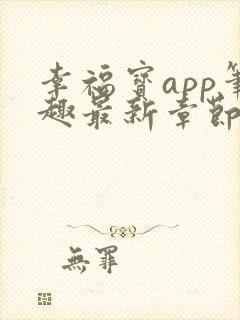 幸福寶app筆
趣最新章節
無罪